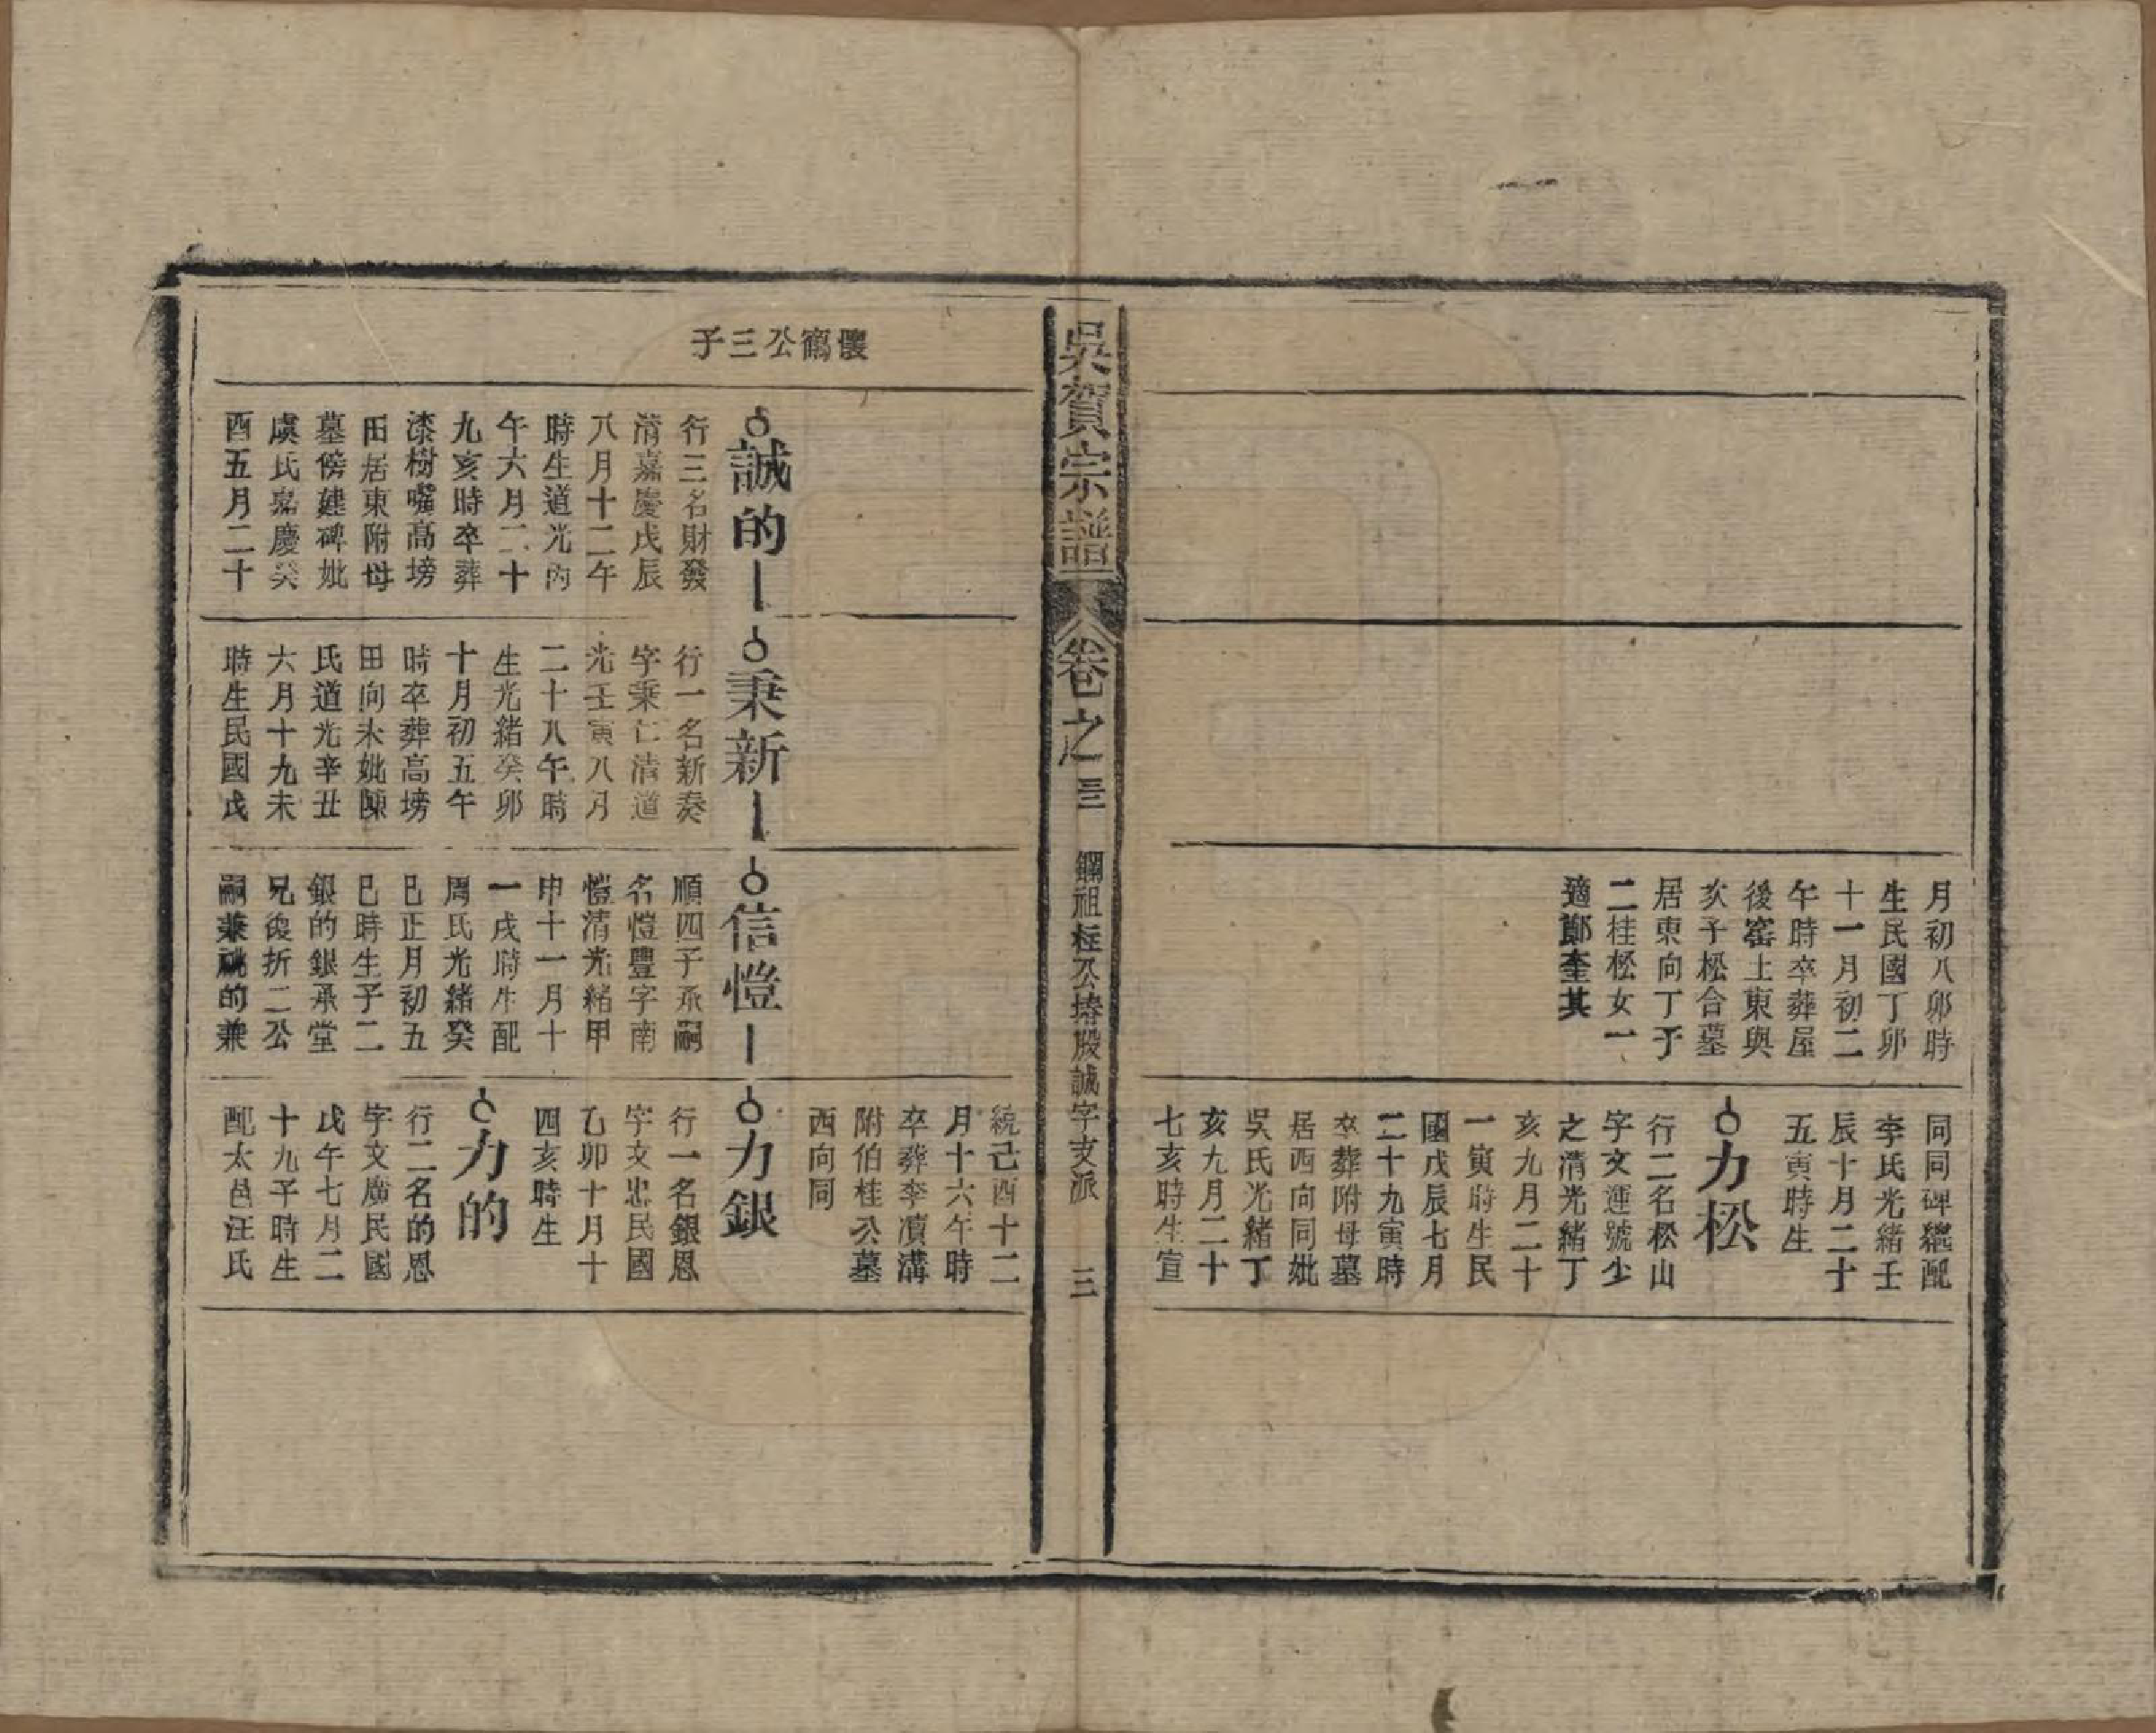 月初八卯時
生民國丁卯
十一月初二
午時卒葬屋
後窰上東與
亥子松合墓
居東向丁子
二桂松女一
適鄭奎其
同同碑繼配
李氏光緒壬
辰十月二十
五寅時生
力松
行二名松山
字文運號少
之清光緒丁
亥九月二十
一寅時生民
國戊辰七月
二十九寅時
卒葬附母墓
居西向同妣
吳氏光緒丁
亥九月二十
七亥時生宣
吳賀宗譜
卷之三
鋼祖柱公椿股誠字支派
三
統己酉十二
月十六午時
卒葬李濆溝
附伯桂公墓
西向同
懷鶴公三子
誠的
行三名財發
清嘉慶戊辰
八月十二午
時生道光丙
午六月二十
九亥時卒葬
漆樹嘴高塝
田居東附母
墓傍建碑妣
虞氏嘉慶癸
酉五月二十
秉新
行一名新奏
字秉仁清道
光壬寅八月
二十八午時
生光緒癸卯
十月初五午
時卒葬高塝
田向未妣陳
氏道光辛丑
六月十九未
時生民國戊
信愷
順四子承嗣
名愷豐字南
愷清光緒甲
申十一月十
一戌時生配
周氏光緒癸
巳正月初五
巳時生子二
銀的銀承堂
兄後折二公
嗣兼祧的兼
力銀
行一名銀恩
字文忠民國
乙卯十月十
四亥時生
力的
行二名的恩
字文廣民國
戊午七月二
十九子時生
配太邑汪氏